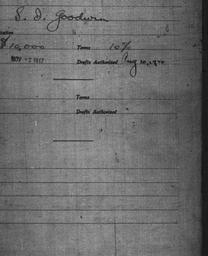 S. I. Goodwin
$10,000 Terms 10%
NOV -2 1917 Drafts Authorized Aug
Terms
Drafts Authorized